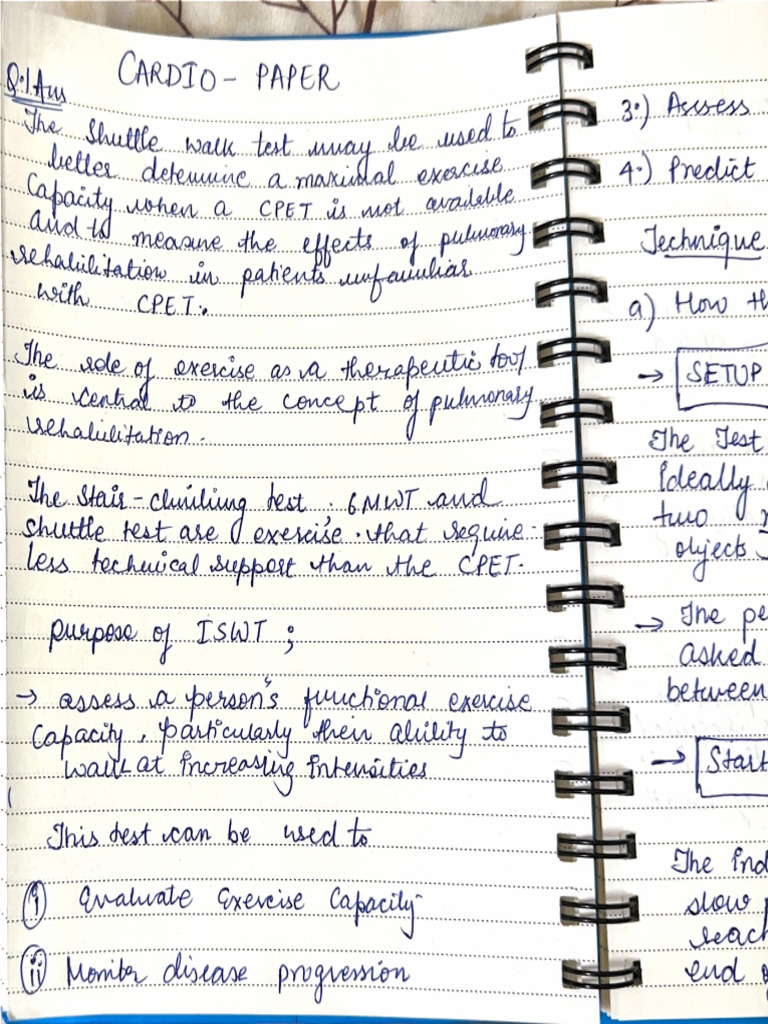 CARDIO - PAPER
Q.1 Ans
The Shuttle walk test may be used to
better determine a maximal exercise
Capacity when a CPET is not available
and to measure the effects of pulmonary
rehabilitation in patients unfamiliar
with CPET.
The role of exercise as a therapeutic tool
is central to the concept of pulmonary
rehabilitation.
The Stair-climbing test, 6MWT and
shuttle test are exercise that require
less technical support than the CPET.
purpose of ISWT ;
→ assess a person's functional exercise
Capacity, particularly their ability to
walk at increasing intensities
This test can be used to
(i) Evaluate Exercise Capacity
(ii) Monitor disease progression
3.) Assess
4.) Predict
Technique
a) How th
→ SETUP
The Test
Ideally
two
objects
→ The pe
asked
between
→ Start
The ind
slow
reach
end